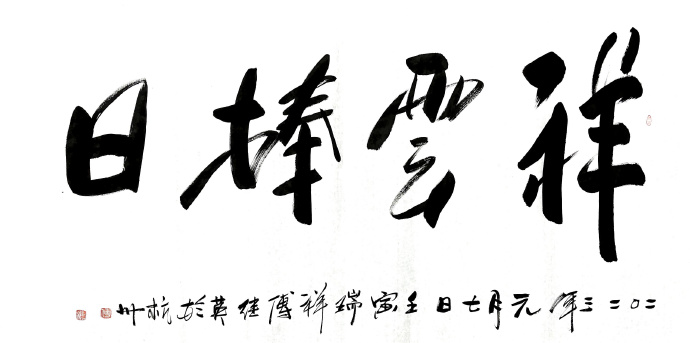 祥雲捧日
二〇二三年元月七日壬寅瑞祥傅继英於杭州